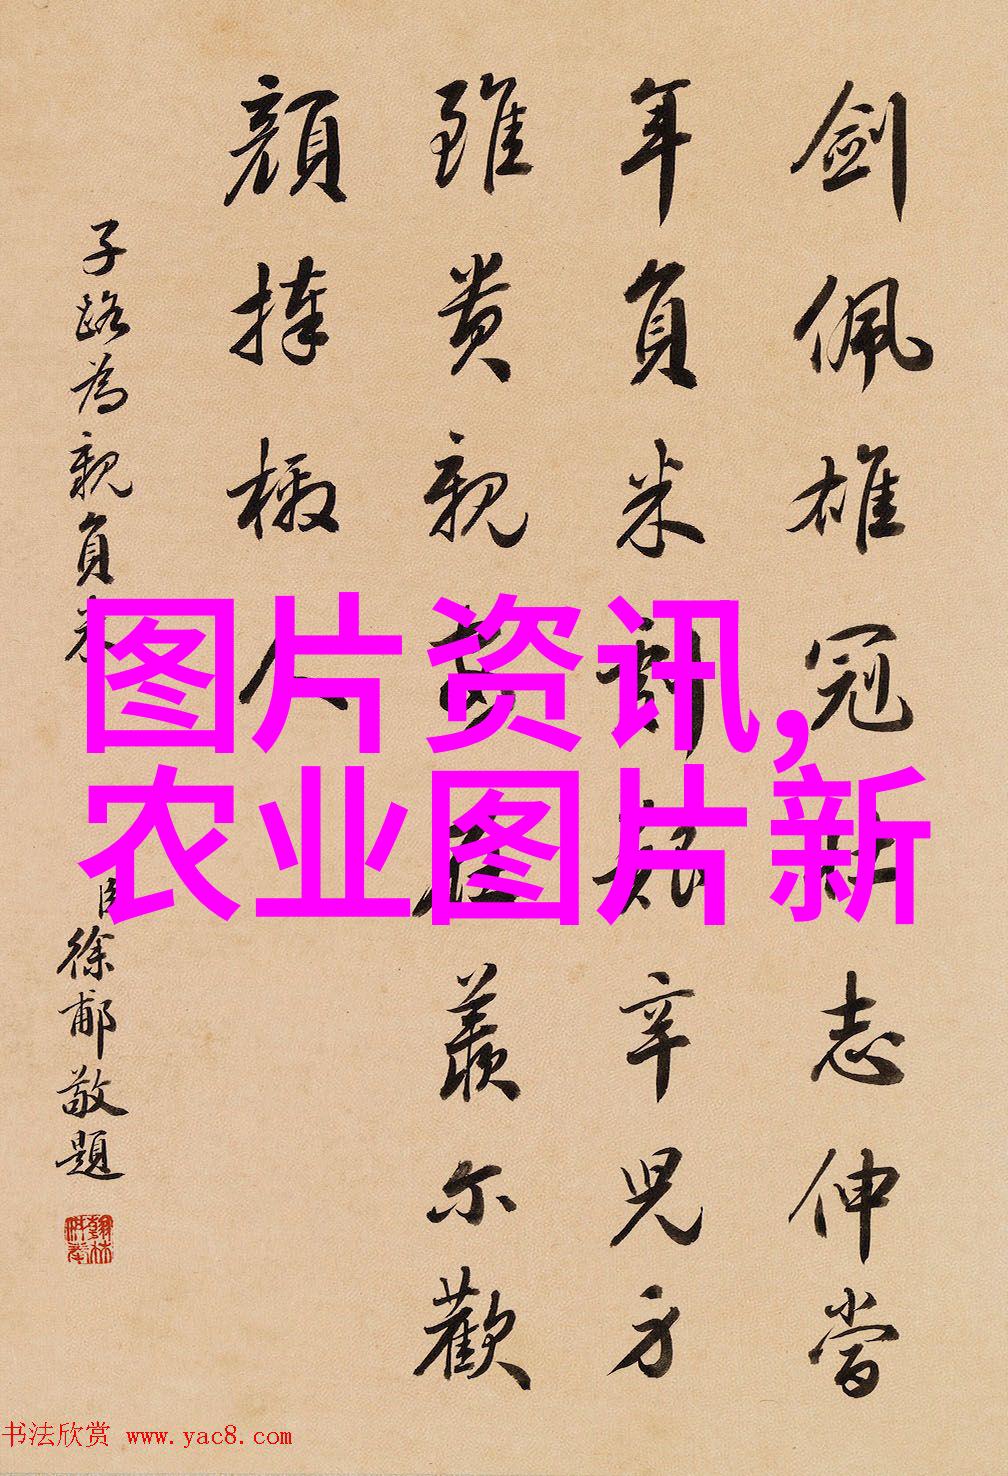 劍佩雄冠志伸當
年負米艱辛兒方
雖貴親在羨尔歡
顏捧檄人
子路為親負米
臣徐郙敬題
图片资讯,
农业图片新
书法欣赏 www.yac8.com